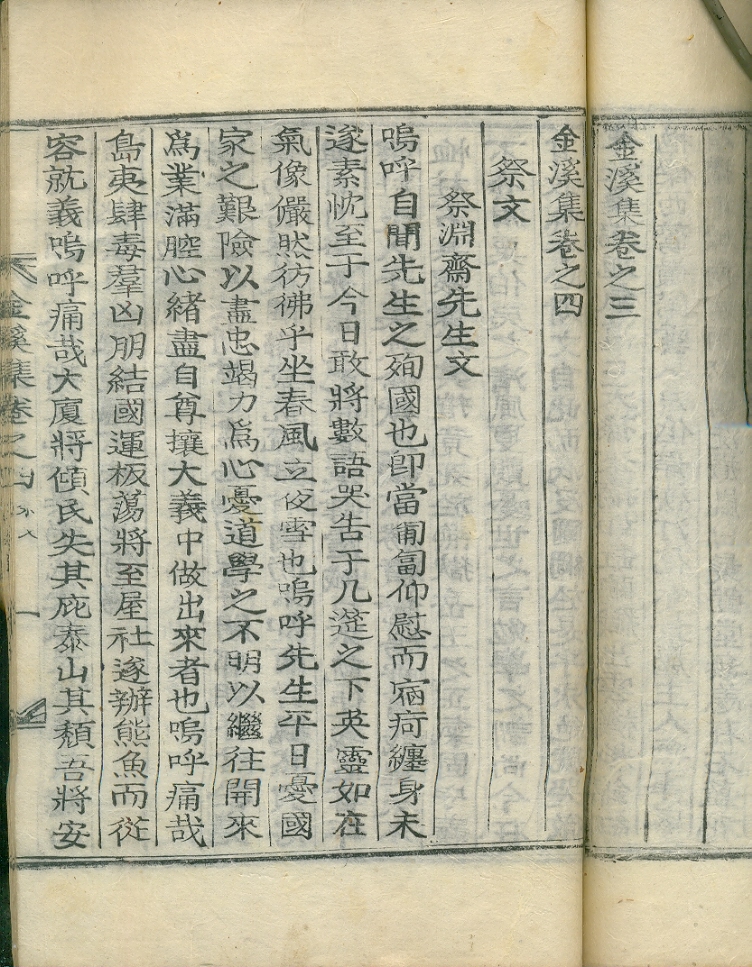 金溪集卷之三
金溪集卷之四
祭文
祭淵齋先生文
嗚呼自聞先生之殉國也卽當匍匐仰慰而宿疴纏身未
遂素忱至于今日敢將數語哭告于几筵之下英靈如在
氣像儼然彷彿乎坐春風立夜雪也嗚呼先生平日憂國
家之艱險以盡忠竭力爲心憂道學之不明以繼往開來
爲業滿腔心緖盡自尊攘大義中做出來者也嗚呼痛哉
島夷肆毒羣凶朋結國運板蕩將至屋社遂辦熊魚而從
容就義嗚呼痛哉大廈將傾民失其庇泰山其頹吾將安
金溪集卷之四 一